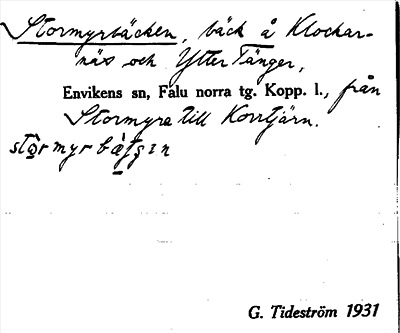 Stormyrbäcken, bäck å Klockar-
näs och Ytter Tänger,
Envikens sn, Falu norra tg. Kopp. l., från
Stormyra till Korrtjärn.
G. Tideström 1931